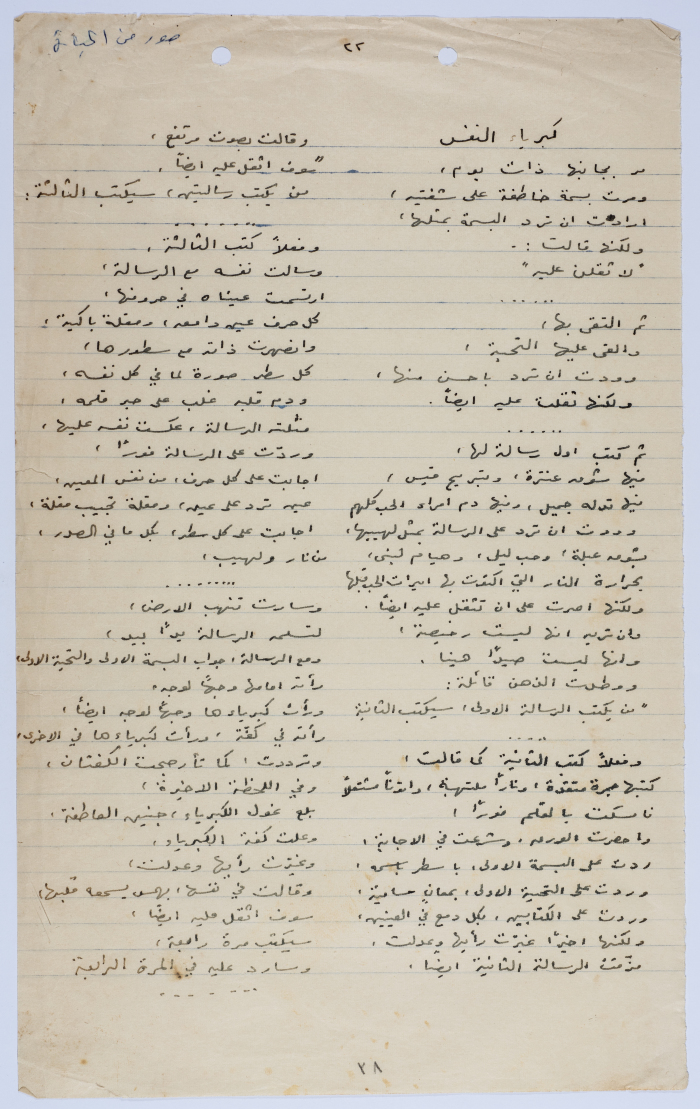 صور من الحياة
٢٢
كبرياء النفس
مر بجانبها ذات يوم،
ومرت بسمة خاطفة على شفتيه،
ارادت ان ترد البسمة بمثلها،
ولكنها قالت :-
"لا ثقلن عليه"
......
ثم التقى بها،
والقى عليها التحية،
وودت ان ترد باحسن منها،
ولكنها ثقلت عليه ايضاً.
......
ثم كتب اول رسالة لها،
فيها شوق عنترة، وتبريح قيس،
فيها توله جميل، وفيها دم امراء الحب كلهم
وودت ان ترد على الرسالة بمثل لهيبها،
بشوق عبلة، وحب ليلى، وهيام لبنى،
بحرارة النار التي اكتوت بها اميرات الحب قبلها
ولكنها اصرت على ان تثقل عليه ايضاً.
وان تريه انها ليست رخيصة،
وانها ليست صيداً هينا.
ووطلت الذهن قائلة:
"من يكتب الرسالة الاولى، سيكتب الثانية
.....
وفعلاً كتب الثانية كما قالت،
كتبها جمرة متقدة، وناراً ملتهبة، واتوناً مشتعلاً
فامسكت بالقلم فوراً،
واحضرت الورق، وشرعت في الاجابة،
ردت على البسمة الاولى، باسطر باسمة،
وردت على التحية الاولى، بمعانٍ سامية،
وردت على الكتابين، بكل دمع في العينين،
ولكنها اخيراً غيرت رأيها وعدلت،
مزقت الرسالة الثانية ايضا.
وقالت بصوت مرتفع،
"سوف اثقل عليه ايضاً،
من يكتب رسالتين، سيكتب الثالثة:
........
وفعلاً كتب الثالثة،
وسالت نفسه مع الرسالة،
ارتسمت عيناه في حروفها،
كل حرف عين دامعة، ومقلة باكية،
وانصهرت ذاته مع سطورها،
كل سطر صورة لما في كل نفسه،
ودم قلبه غلب على حبر قلمه،
مثلته الرسالة، عكست نفسه عليها،
وردّت على الرسالة فوراً،
اجابت على كل حرف، من نفس المعين،
عين ترد على عين، ومقلة تجيب مقلة،
اجابت على كل سطر، بكل ما في الصدور،
من نار ولهيب،
.........
وسارت تنهب الارض،
لتسلمه الرسالة يداً بيد،
ومع الرسالة، جواب البسمة الاولى والتحية الاولى،
رأته امامها وجهاً لوجه،
ورأت كبرياءها وجهاً لوجه ايضاً،
رأته في كفّة، ورأت كبرياءها في الاخرى،
وترددت، كما تأرجحت الكفتان،
وفي اللحظة الاخيرة،
بلع غول الكبرياء، جنين العاطفة.
وعلت كفة الكبرياء،
وغيّرت رأيها وعدلت،
وقالت في نفسها، بهمس يسمعه قلبها،
سوف اثقل عليه ايضاً،
سيكتب مرة رابعة،
وسارد عليه في المرة الرابعة
........
٣٨